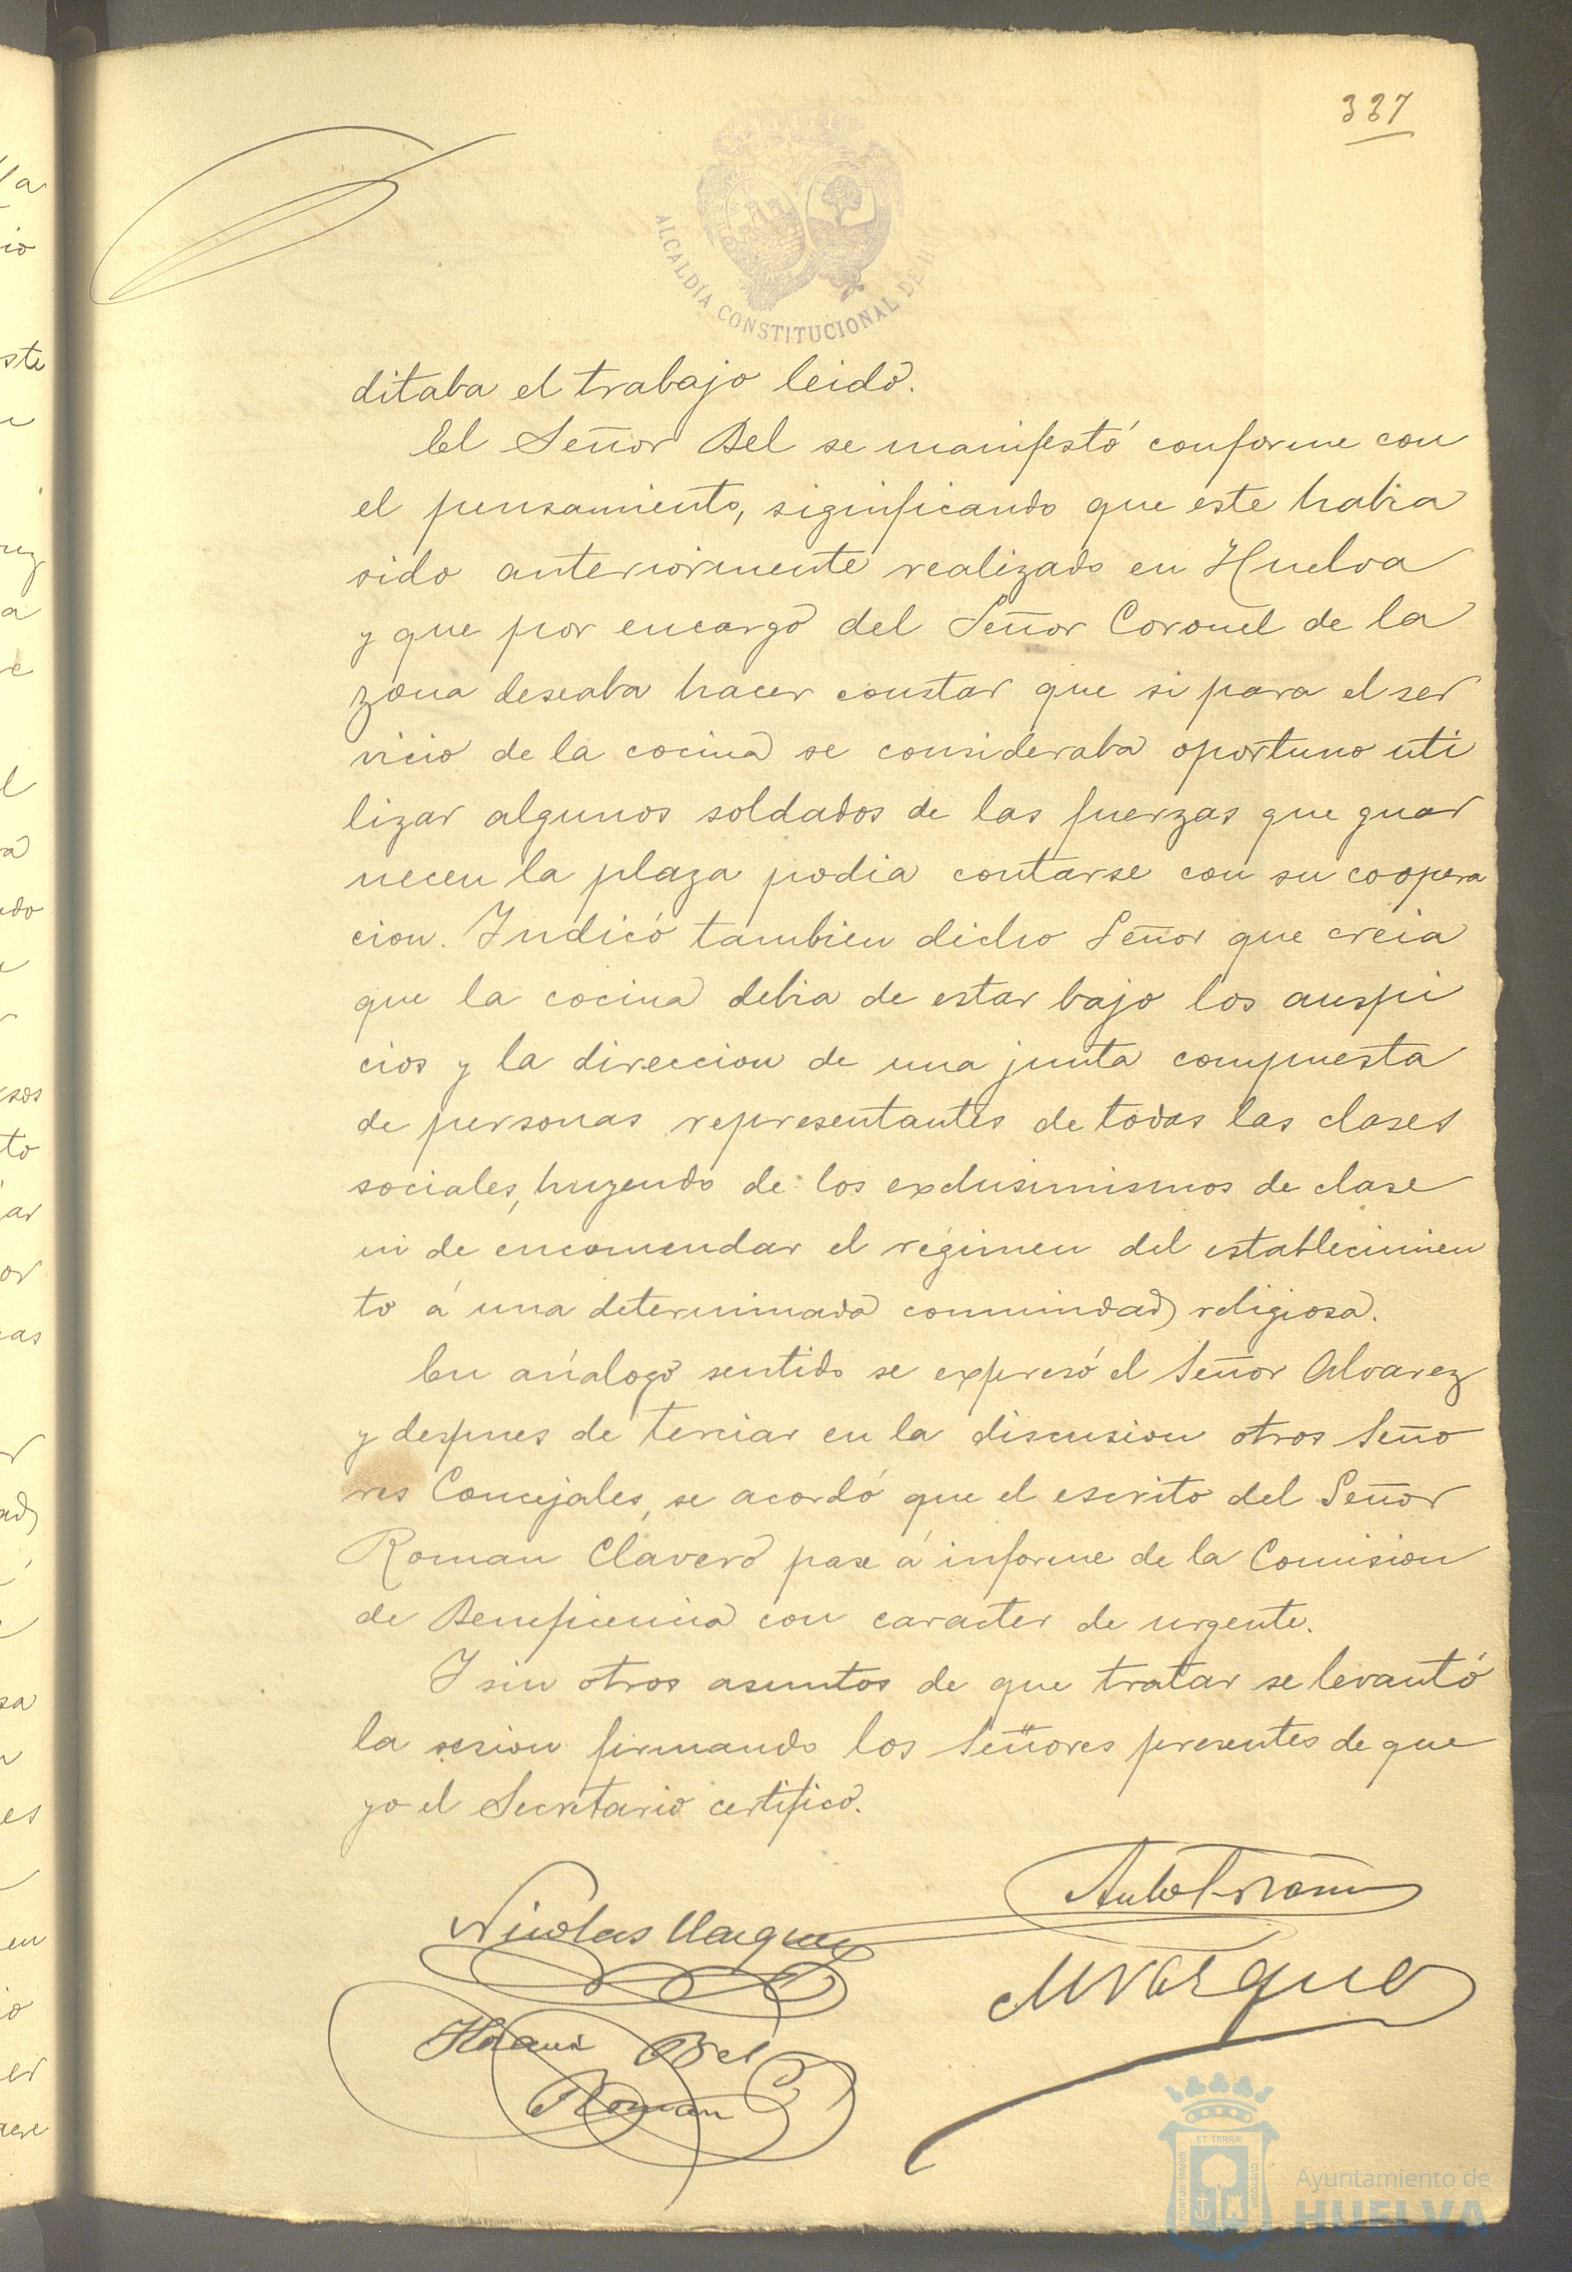 337
ALCALDIA CONSTITUCIONAL DE H
ditaba el trabajo leido.
El Señor Bel se manifestó conforme con
el pensamiento, significando que este habia
sido anteriormente realizado en Huelva
y que por encargo del Señor Coronel de la
zona deseaba hacer constar que si para el ser
vicio de la cocina se consideraba oportuno uti
lizar algunos soldados de las fuerzas que guar
necen la plaza podia contarse con su coopera
cion. Indicó tambien dicho Señor que creia
que la cocina debia de estar bajo los auspi
cios y la direccion de una junta compuesta
de personas representantes de todas las clases
sociales, huyendo de los exclusimismos de clase
ni de encomendar el régimen del establecimien
to á una determinada comunidad religiosa.
En análogo sentido se expresó el Señor Alvarez
y despues de terciar en la discusion otros Seño
res Concejales, se acordó que el escrito del Señor
Roman Clavero pase á informe de la Comision
de Beneficencia con caracter de urgente.
Y sin otros asuntos de que tratar se levantó
la sesion firmando los Señores presentes de que
yo el Secretario certifico.
Nicolas Vazquez
M Vazquez
Bel
Roman
ET TERRA
PORTUS MARIS
CUSTODIA
Ayuntamiento de
HUELVA